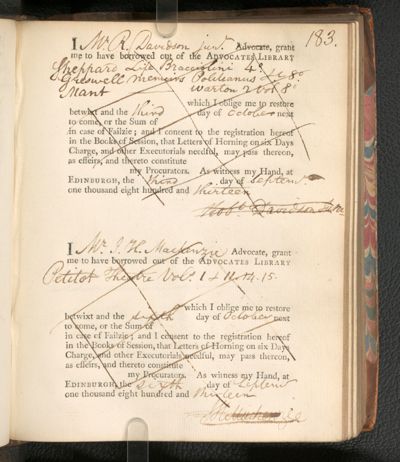 183.
I Mr R. Davidson junr. Advocate, grant
me to have borrowed out of the ADVOCATES LIBRARY
Sheppard Life Bracciolini 4o
Greswell memoirs Politianus &c 8o
Mant Warton 2 vol 8o
which I oblige me to restore
betwixt and the third day of October next
to come, or the Sum of
in case of Failzie; and I consent to the registration hereof
in the Books of Session, that Letters of Horning on six Days
Charge, and other Executorials needful, may pass thereon,
as effeirs, and thereto constitute
my Procurators. As witness my Hand, at
EDINBURGH, the third day of Septemr.
one thousand eight hundred and thirteen
Robt. Davidson
I Mr. J. H. Mackenzie Advocate, grant
me to have borrowed out of the ADVOCATES LIBRARY
Petitot Theatre Vol. 1 & 11. 14. 15.
which I oblige me to restore
betwixt and the sixth day of October next
to come, or the Sum of
in case of Failzie; and I consent to the registration hereof
in the Books of Session, that Letters of Horning on six Days
Charge, and other Executorials needful, may pass thereon,
as effeirs, and thereto constitute
my Procurators. As witness my Hand, at
EDINBURGH, the sixth day of Septemr
one thousand eight hundred and thirteen